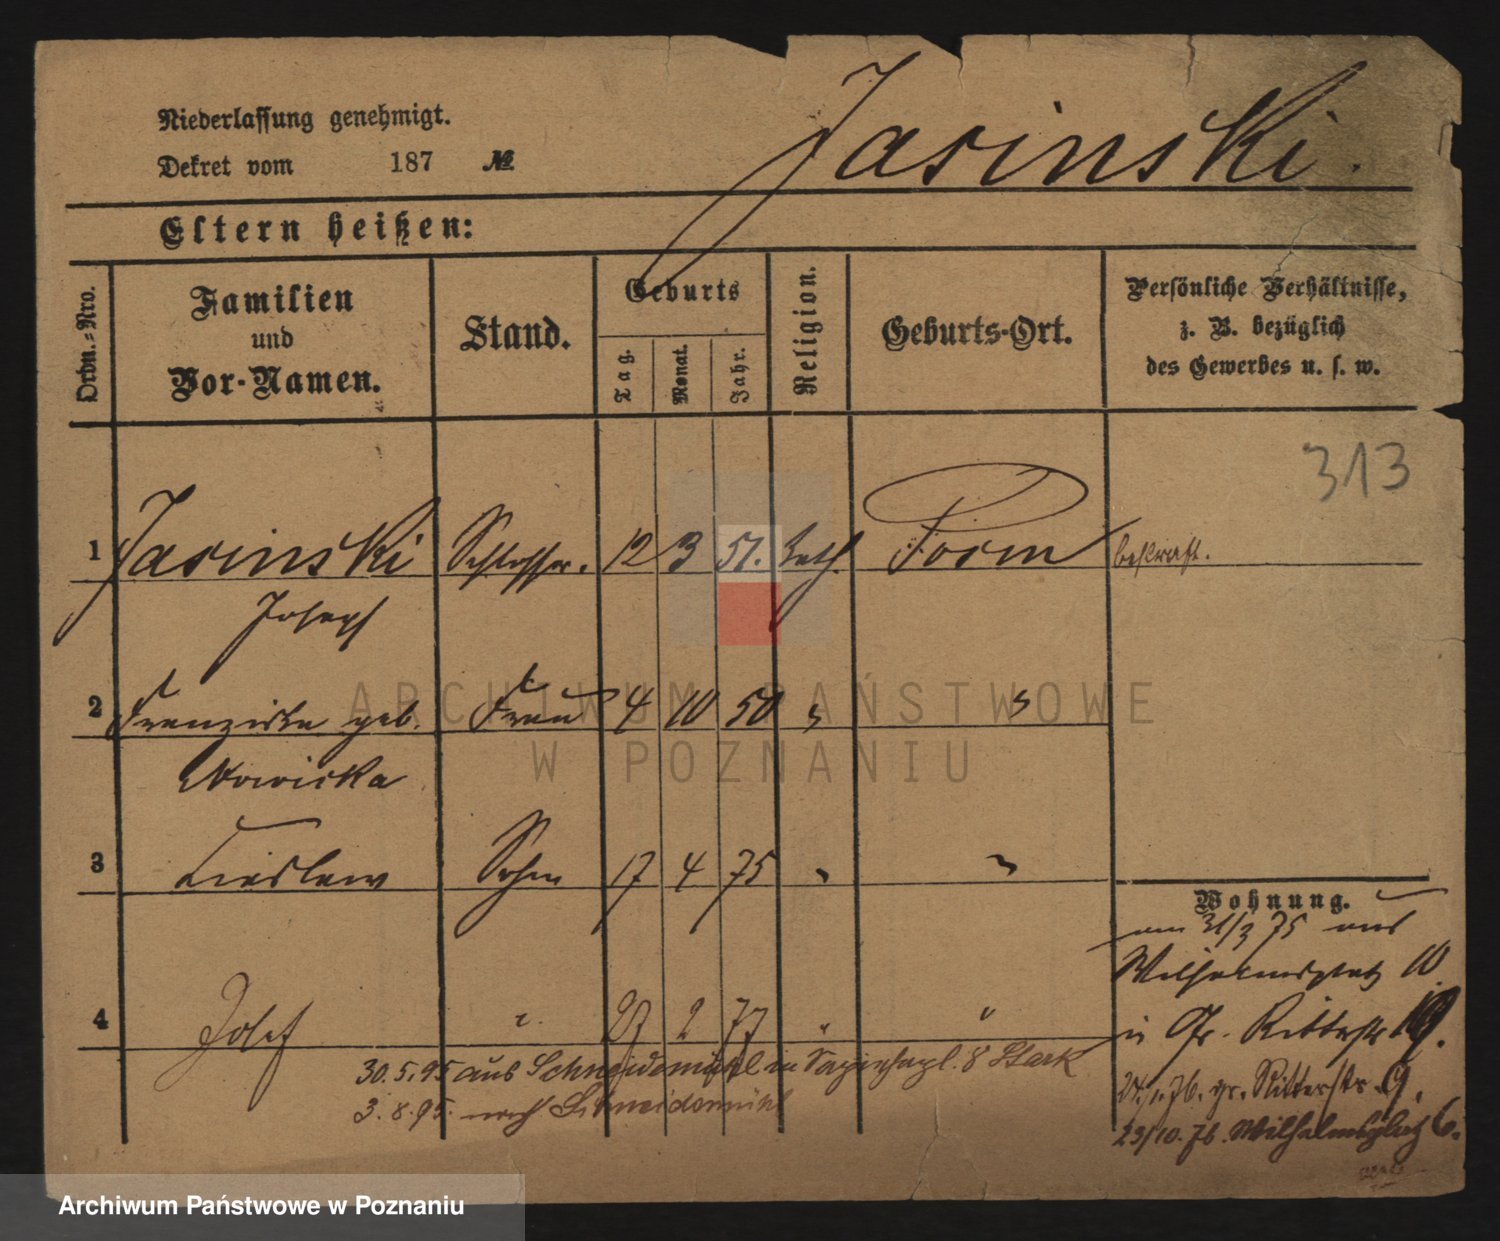 Jasinski.
Niederlassung genehmigt.
Dekret vom 187 №
Eltern heißen:
Ordn.-Nro.
Familien und Vor-Namen.
Stand.
Geburts
Tag. Monat. Jahr.
Religion.
Geburts-Ort.
Persönliche Verhältnisse,
z. B. bezüglich
des Gewerbes u. s. w.
313
1 Jasinski Schlosser. 12 3 51. kath. Posen
Joseph
2 Franziska geb. Frau 4 10 50 "
Nowicka
3 Sohn 17 4 75 "
Wohnung.
am 31/3 75 aus
Wilhelmsplatz 10
in Gr. Ritterstr 19.
4 Josef " 27 2 77 " "
30.5.95 aus Schneidemühl in 8 Stark
24./1.76. gr. Ritterstr. 9.
3.8.95. nach Schneidemühl
23/10.76. Wilhelmsplatz 6.
ARCHIWUM PAŃSTWOWE
W POZNANIU
Archiwum Państwowe w Poznaniu